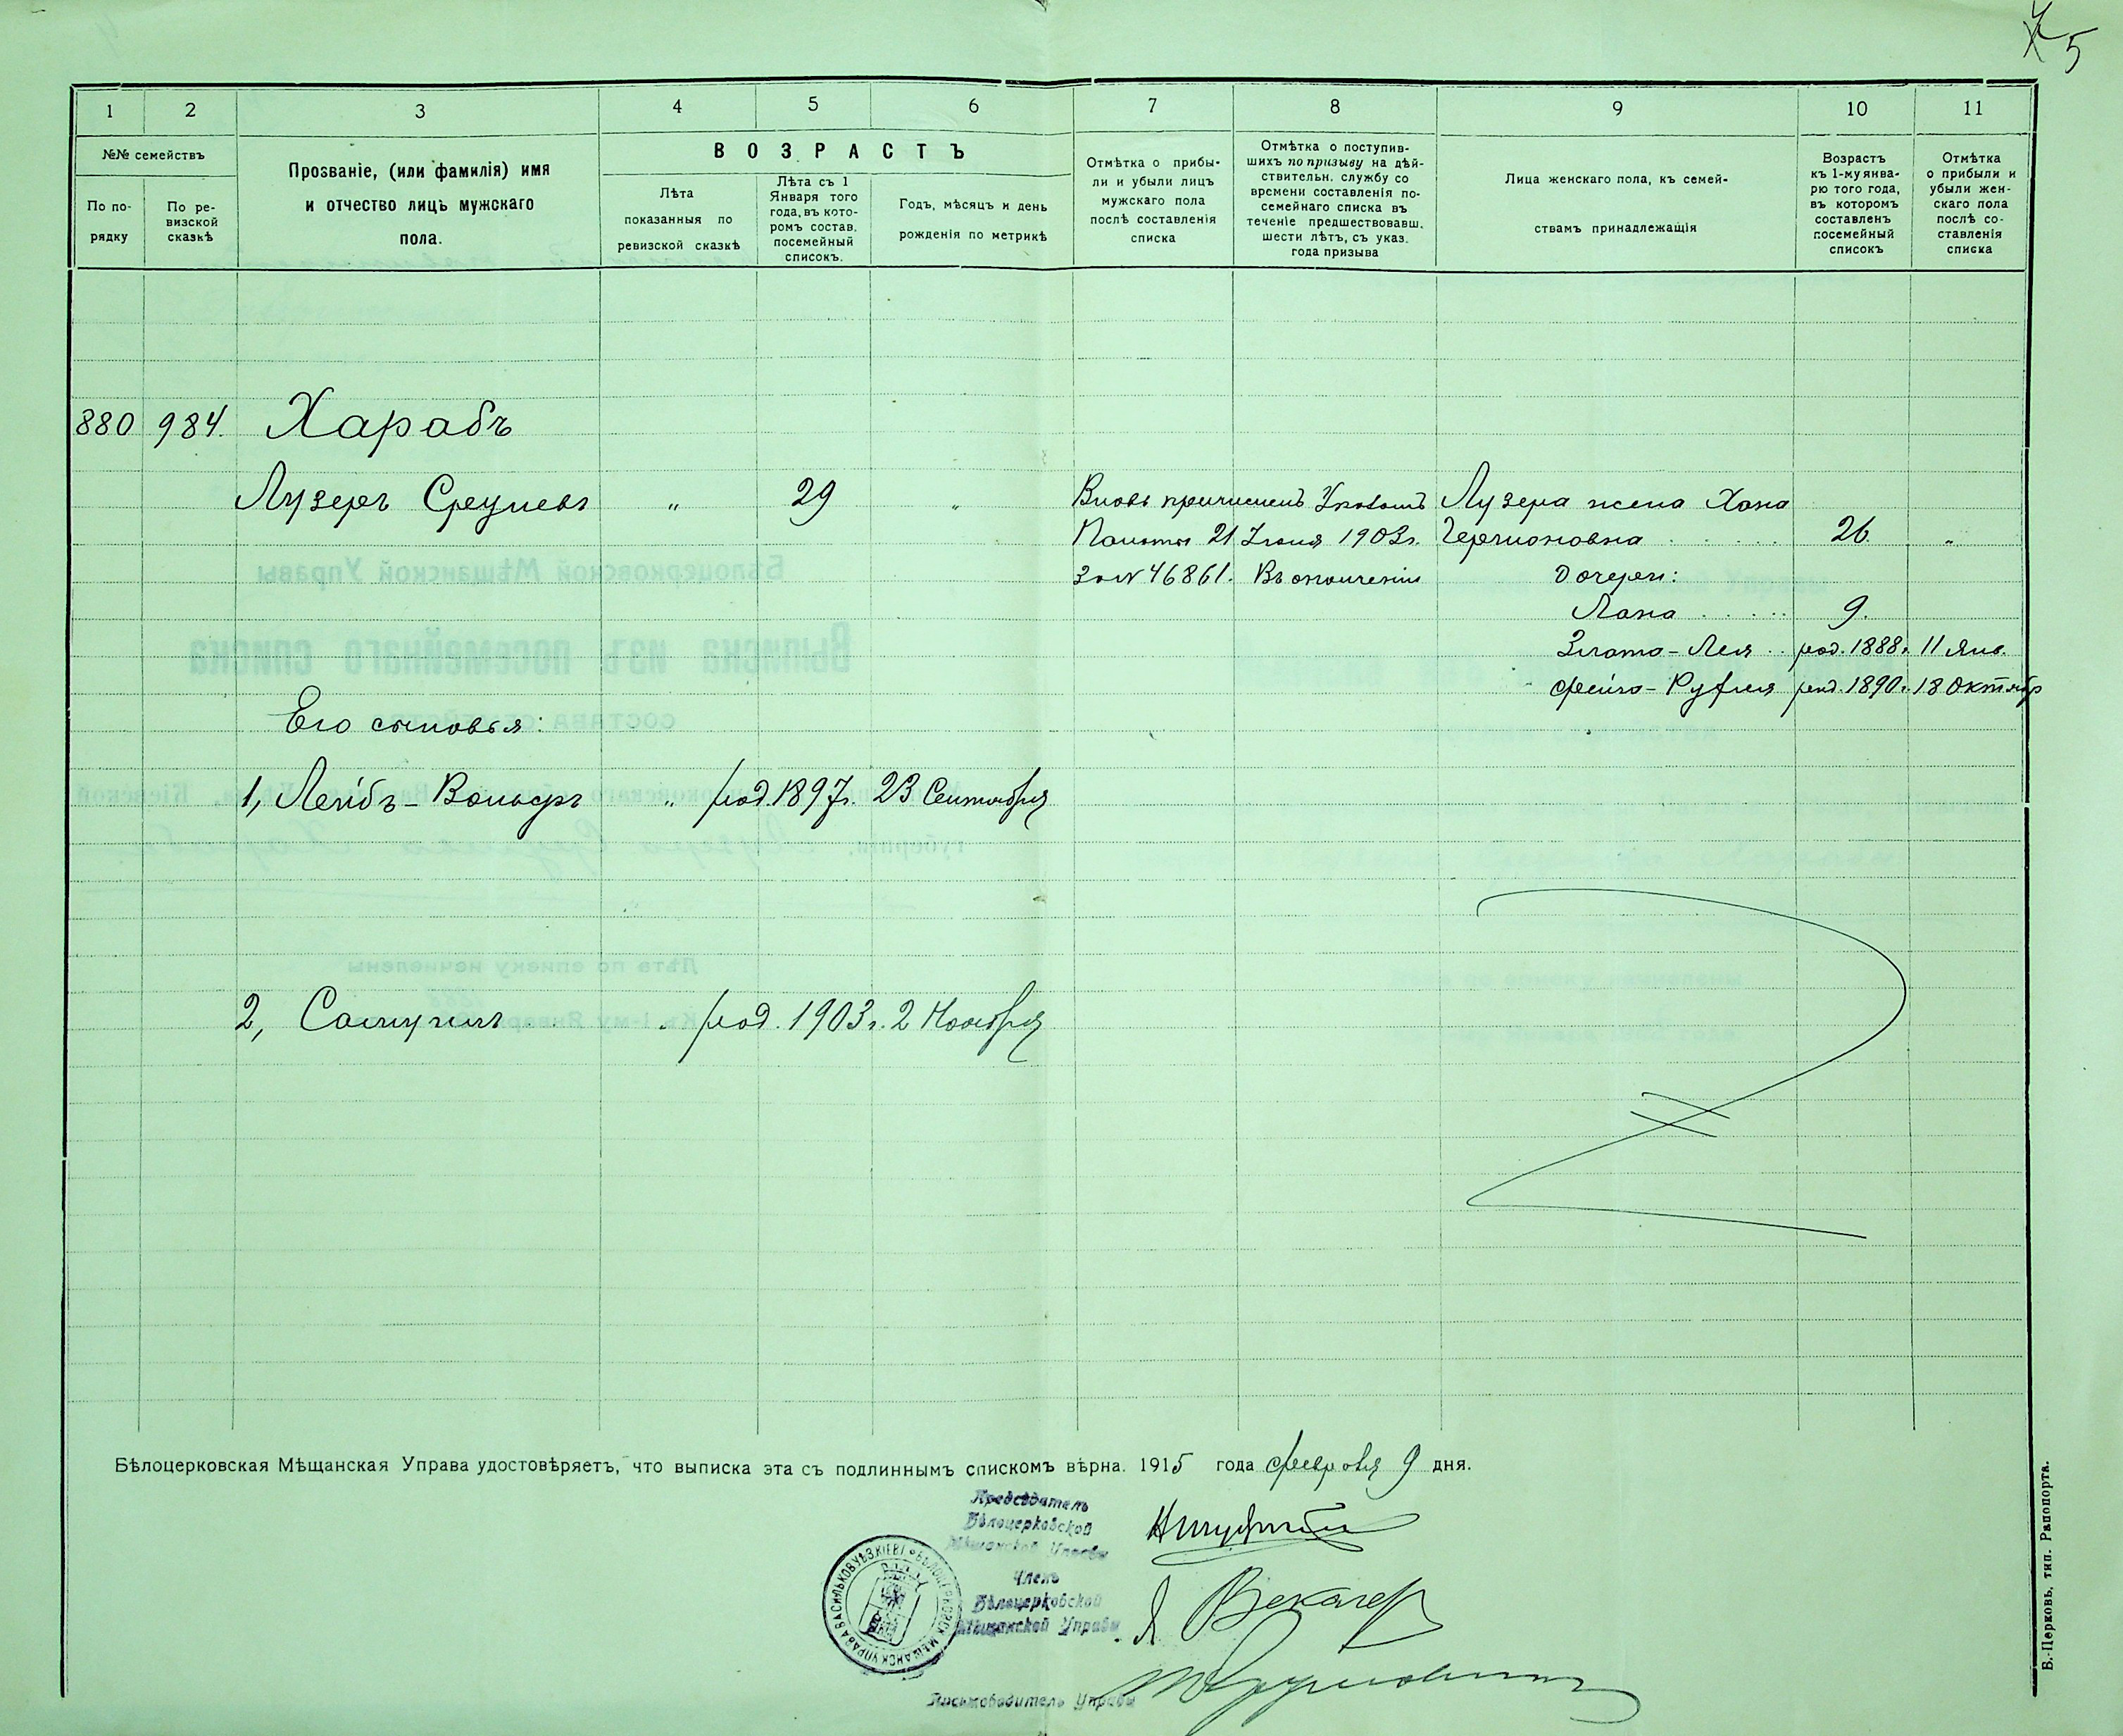 5
1 2 3 4 5 6 7 8 9 10 11
№№ семействъ
По по-
рядку
По ре-
визской
сказкѣ
Прозваніе, (или фамилія) имя
и отчество лицъ мужскаго
пола.
ВОЗРАСТЪ
Лѣта
показанныя по
ревизской сказкѣ
Лѣта съ 1
Января того
года, въ кото-
ромъ состав.
посемейный
списокъ.
Годъ, мѣсяцъ и день
рожденія по метрикѣ
Отмѣтка о прибы-
ли и убыли лицъ
мужскаго пола
послѣ составленія
списка
Отмѣтка о поступив-
шихъ по призыву на дѣй-
ствительн. службу со
времени составленія по-
семейнаго списка въ
теченіе предшествовавш.
шести лѣтъ, съ указ.
года призыва
Лица женскаго пола, къ семей-
ствамъ принадлежащія
Возрастъ
къ 1-му янва-
рю того года,
въ которомъ
составленъ
посемейный
списокъ
Отмѣтка
о прибыли и
убыли жен-
скаго пола
послѣ со-
ставленія
списка
880 984. Харабъ
Лузеръ Срулевъ " 29 " Вновь причисленъ Указомъ Лузера жена Хана
Палаты 21 Іюня 1903г. 26. "
За № 46861. Дочери:
9.
Злата-Лея .. род. 1888г. 11 Янв.
Фейга-Рухля род. 1890г. 18 Октябр
Его сыновья:
1, Лейбъ-Вольфъ " род. 1897г. 23 Сентября
2, Самуилъ " род. 1903г. 2 Ноября
Бѣлоцерковская Мѣщанская Управа удостовѣряетъ, что выписка эта съ подлиннымъ спискомъ вѣрна. 1915 года февраля 9 дня.
Предсѣдатель
Бѣлоцерковской
Мѣщанской Управы
Членъ
Бѣлоцерковской
Мѣщанской Управы
Письмоводитель Управы
Б.-Церковь, тип. Рапопорта.